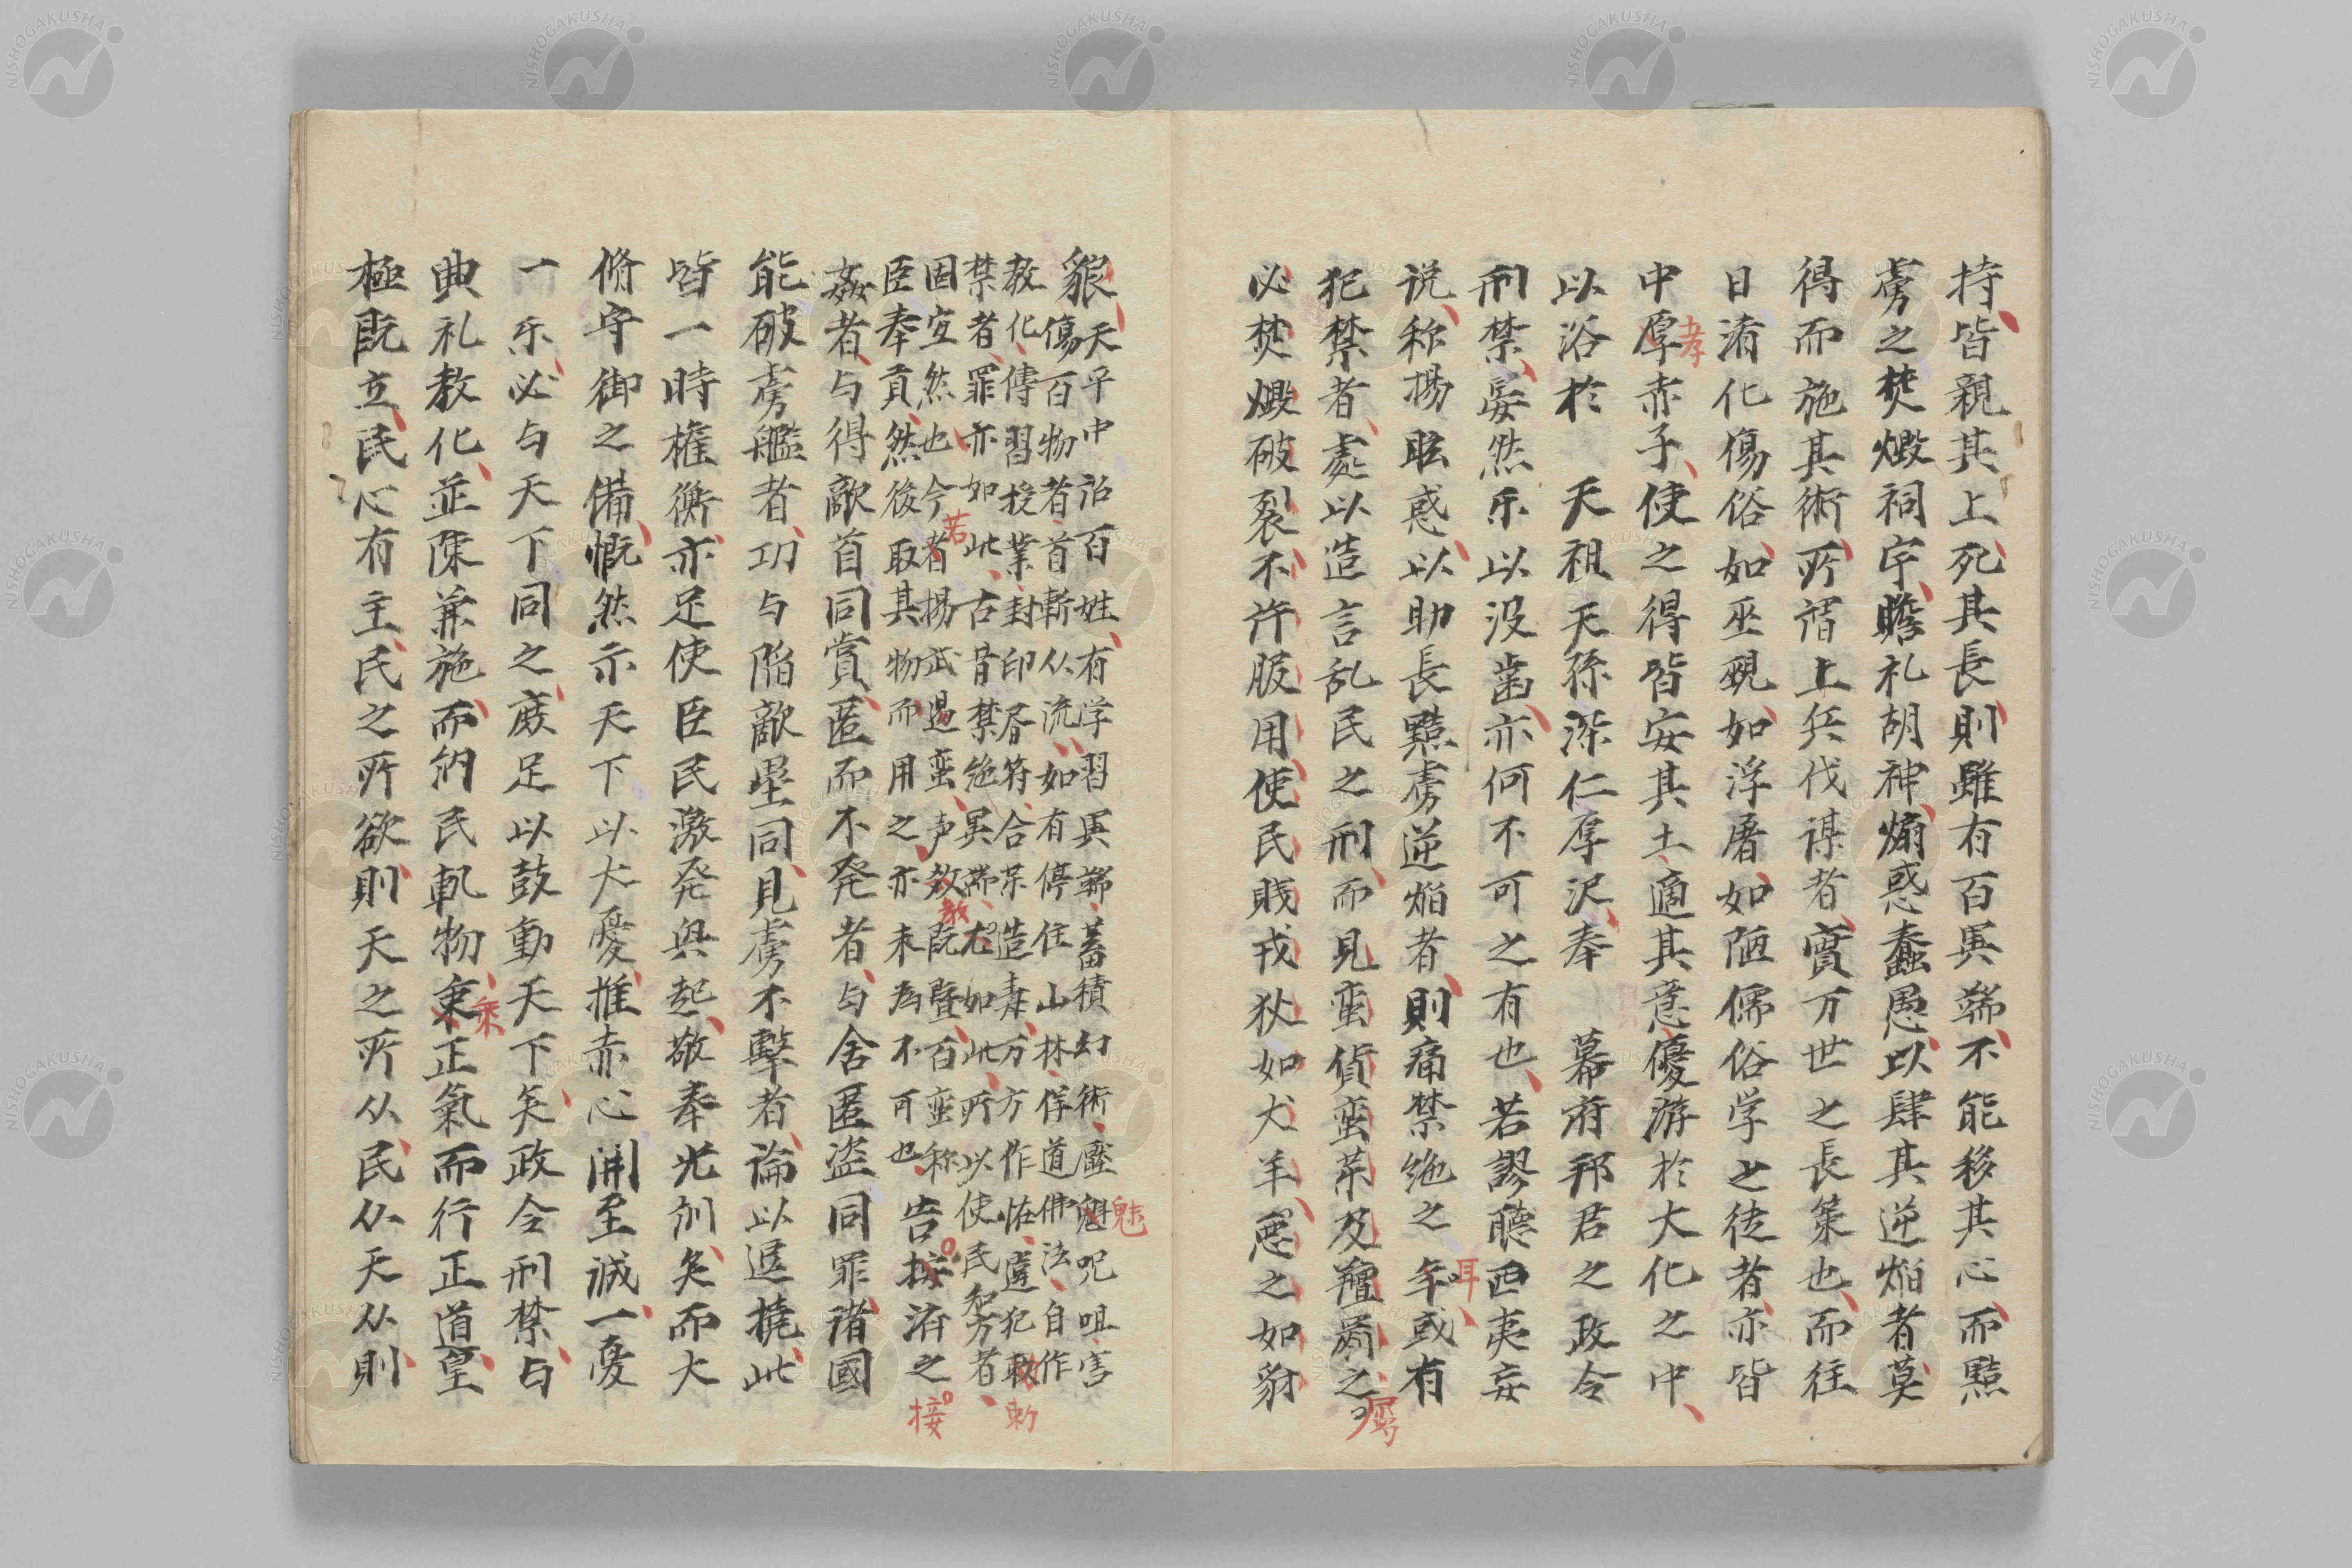 持皆親其上死其長則雖有百異端不能移其心而黠
虜之焚燬祠宇瞻礼胡神煽惑蠢愚以肆其逆焔者莫
得而施其術所謂上兵伐謀者實万世之長策也而往
日淆化傷俗如巫覡如浮屠如陋儒俗学之徒者亦皆
中厚赤子使之得皆安其土適其意優游於大化之中
孝
以浴於 天祖天孫深仁厚沢奉 幕府邦君之政令
刑禁晏然乐以没歯亦何不可之有也若謬聴西夷妄
説称揚眩惑以助長黠虜逆焔者則痛禁絶之年或有
耳
犯禁者處以造言乱民之刑而見蛮貨蛮茶及羶罽之
罽
必焚燬破裂不許服用使民賎戎狄如犬羊悪之如豺
貇天平中詔百姓有学習異端蓄積幻術壓魁呪咀害
魅
傷百物者首斬从流如有停住山林佯道佛法自作
教化傳習授業封印居符合茶造毒万方作怪違犯敕
勅
禁者罪亦如此古昔禁絶異端尤如此所以使民知方者
固宜然也今者揚武遏蛮声教既曁百蛮称
若
教
臣奉貢然後取其物而用之亦未為不可也告接済之
接
姦者与得敵首同賞匿而不発者与舍匿盗同罪諸國
能破虜艦者功与陥敵塁同見虜不擊者論以逗撓此
皆一時権衡亦足使臣民激発興起敬奉光訓矣而大
脩守御之備慨然示天下以大憂推赤心開至誠一憂
一乐必与天下同之蔵足以鼓動天下矣政令刑禁与
典礼教化並陳兼施而納民軌物秉正氣而行正道皇
乘
極既立民心有主民之所欲則天之所从民仏天从則